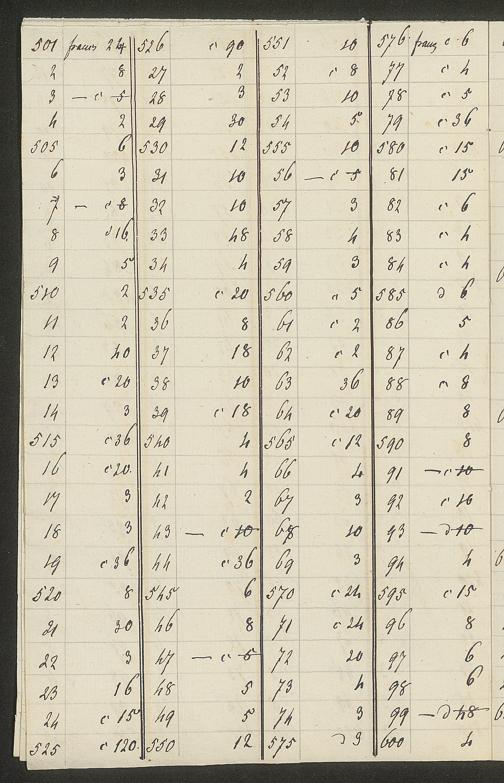 501 francs 24 526 c 90 551 10 576 franç c 6
2 8 27 2 52 c 8 77 c 4
3 — c 5 28 3 53 10 78 c 5
4 2 29 30 54 5 79 c 36
505 6 530 12 555 10 580 c 15
6 3 31 10 56 — c 5 81 15
7 — c 8 32 10 57 3 82 c 6
8 16 33 48 58 4 83 c 4
9 5 34 4 59 3 84 c 4
510 2 535 c 20 560 c 5 585 d 6
11 2 36 8 61 c 2 86 5
12 40 37 18 62 c 2 87 c 4
13 c 20 38 10 63 36 88 c 8
14 3 39 c 18 64 c 20 89 8
515 c 36 540 4 565 c 12 590 8
16 c 20 41 4 66 4 91 — c 10
17 3 42 2 67 3 92 c 10
18 3 43 — c 10 68 10 93 — d 10
19 c 36 44 c 36 69 3 94 4
520 8 545 6 570 c 24 595 c 15
21 30 46 8 71 c 24 96 8
22 3 47 — c 5 72 20 97 6
23 16 48 5 73 4 98 6
24 c 15 49 5 74 3 99 — d 48
525 c 120 550 12 575 d 3 600 4